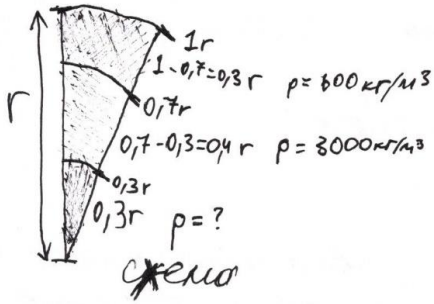 1r
1-0,7=0,3r ρ=600кг/м³
r
0,7r
0,7-0,3=0,4r ρ=3000кг/м³
0,3r
0,3r ρ=?
схема